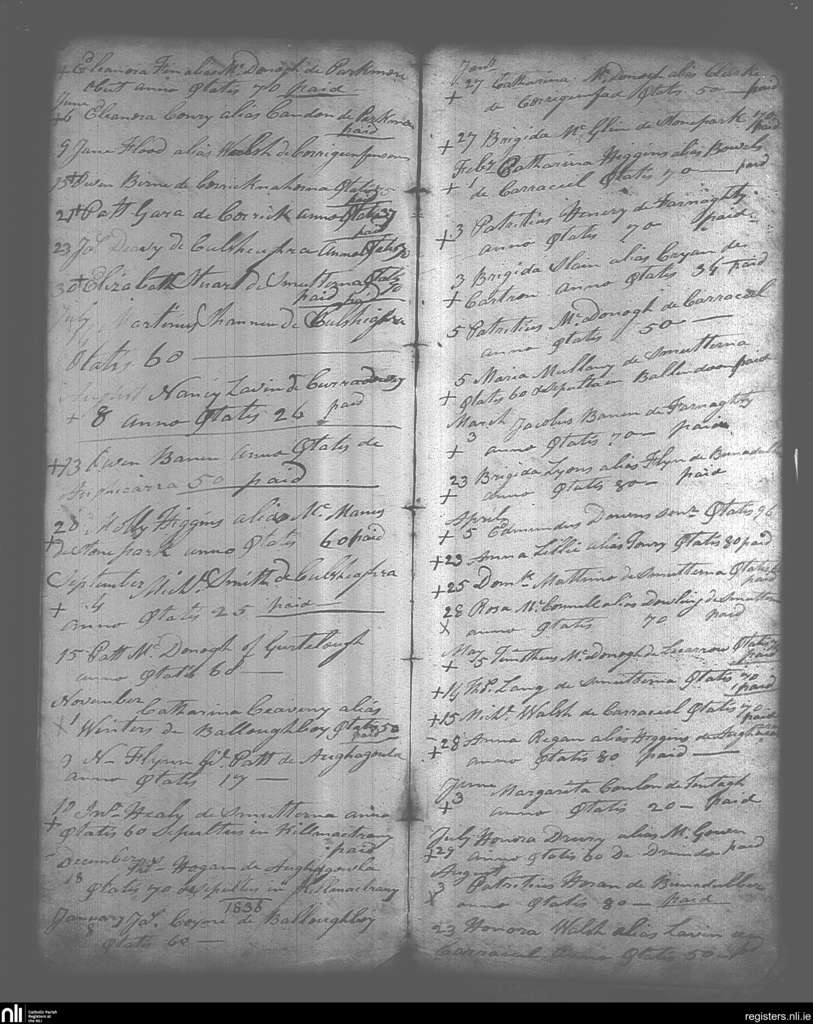 + Eleanora Finn alias Mc Donogh de Parkmore
obiit anno Ætatis 70 paid
June
+6 Eleanora Conry alias Candon de Parkmore
paid
9 Jane Flood alias Walsh de
15+ Owen Birne de Corricknahorna Ætatis
21+ Patt Gara de Corrick anno Ætatis 37
paid
23 Jos Deavy de Culsheaghra anno Ætatis 70
30+ Elizabeth Stuart de Smutterna Ætatis 70
paid
July
Martinus Shannon de Culsheaghra
Ætatis 60
August Nancy Lavin de
+ 8 anno Ætatis 24 paid
+13 Owen Banen anno Ætatis de
50 paid
20 Molly Higgins alias Mc Manus
+ de Stone park anno Ætatis 60 paid
September Michl Smith de Culsheaghra
+ 4
anno Ætatis 25 paid
15 Patt Mc Donogh of Gurtelough
anno Ætatis 60
November Catharina Ceaveny alias
X 1 Winters de Balloughboy Ætatis 50
paid
Flynn Patt de Aughagowla
anno Ætatis 17
12 Jno Healy de Smutterna anno
+ Ætatis 60 Sepultus in Killmactrany
paid
December Hogan de Aughagowla
18 Ætatis 70 Sepultus in Killmactrany
1836
January Jas Coyne de Balloughboy
8 Ætatis 60
Jany
+ 27 Catharina Mc Donogh alias Clarke
de Ætatis 50 paid
+ 27 Brigida Mc Glin de Stonepark 70
paid
Feby Catharina Higgins alias Bowels
+ 1 de Carracuil Ætatis 70 paid
+3 Patritius Henery de Tarnaghty
anno Ætatis 70 paid
3 Brigida Slain alias de
+ Castron anno Ætatis 34 paid
5 Patritius Mc Donogh de Carracuil
anno Ætatis 50
5 Maria Mullany de Smutterna
+ Ætatis 60 & Sepulta in Ballindoon paid
March Jacobus Banen de Tarnaghty
+ 3 anno Ætatis 70 paid
23 Brigida Lyons alias Flyn de
+ anno Ætatis 80 paid
April
+ 5 Edmundus Downs Senr Ætatis 96
+23 Anna Lillie alias Ætatis 80 paid
+25 Domk Mattimo de Smutterna Ætatis
paid
28 Rosa Mc Connell alias Dowling de Smutterna
X anno Ætatis 70 paid
May
+ 5 Timotheus Mc Donogh de Lecarrow Ætatis
paid
+14 Ths Lang de Smutterna Ætatis 70
paid
+15 Michl Walsh de Carracuil Ætatis 70
paid
+28 Anna Regan alias Higgins de
anno Ætatis 80 paid
June
+3 Margarita Conlon de
anno Ætatis 20 paid
July Honora Drury alias Mc Gowen
+29 anno Ætatis 60 De paid
August
3 Patritius Horan de
X anno Ætatis 80 paid
23 Honora Walsh alias Lavin
Carracuil anno Ætatis 50
nli Catholic Parish
Registers at
the NLI
registers.nli.ie